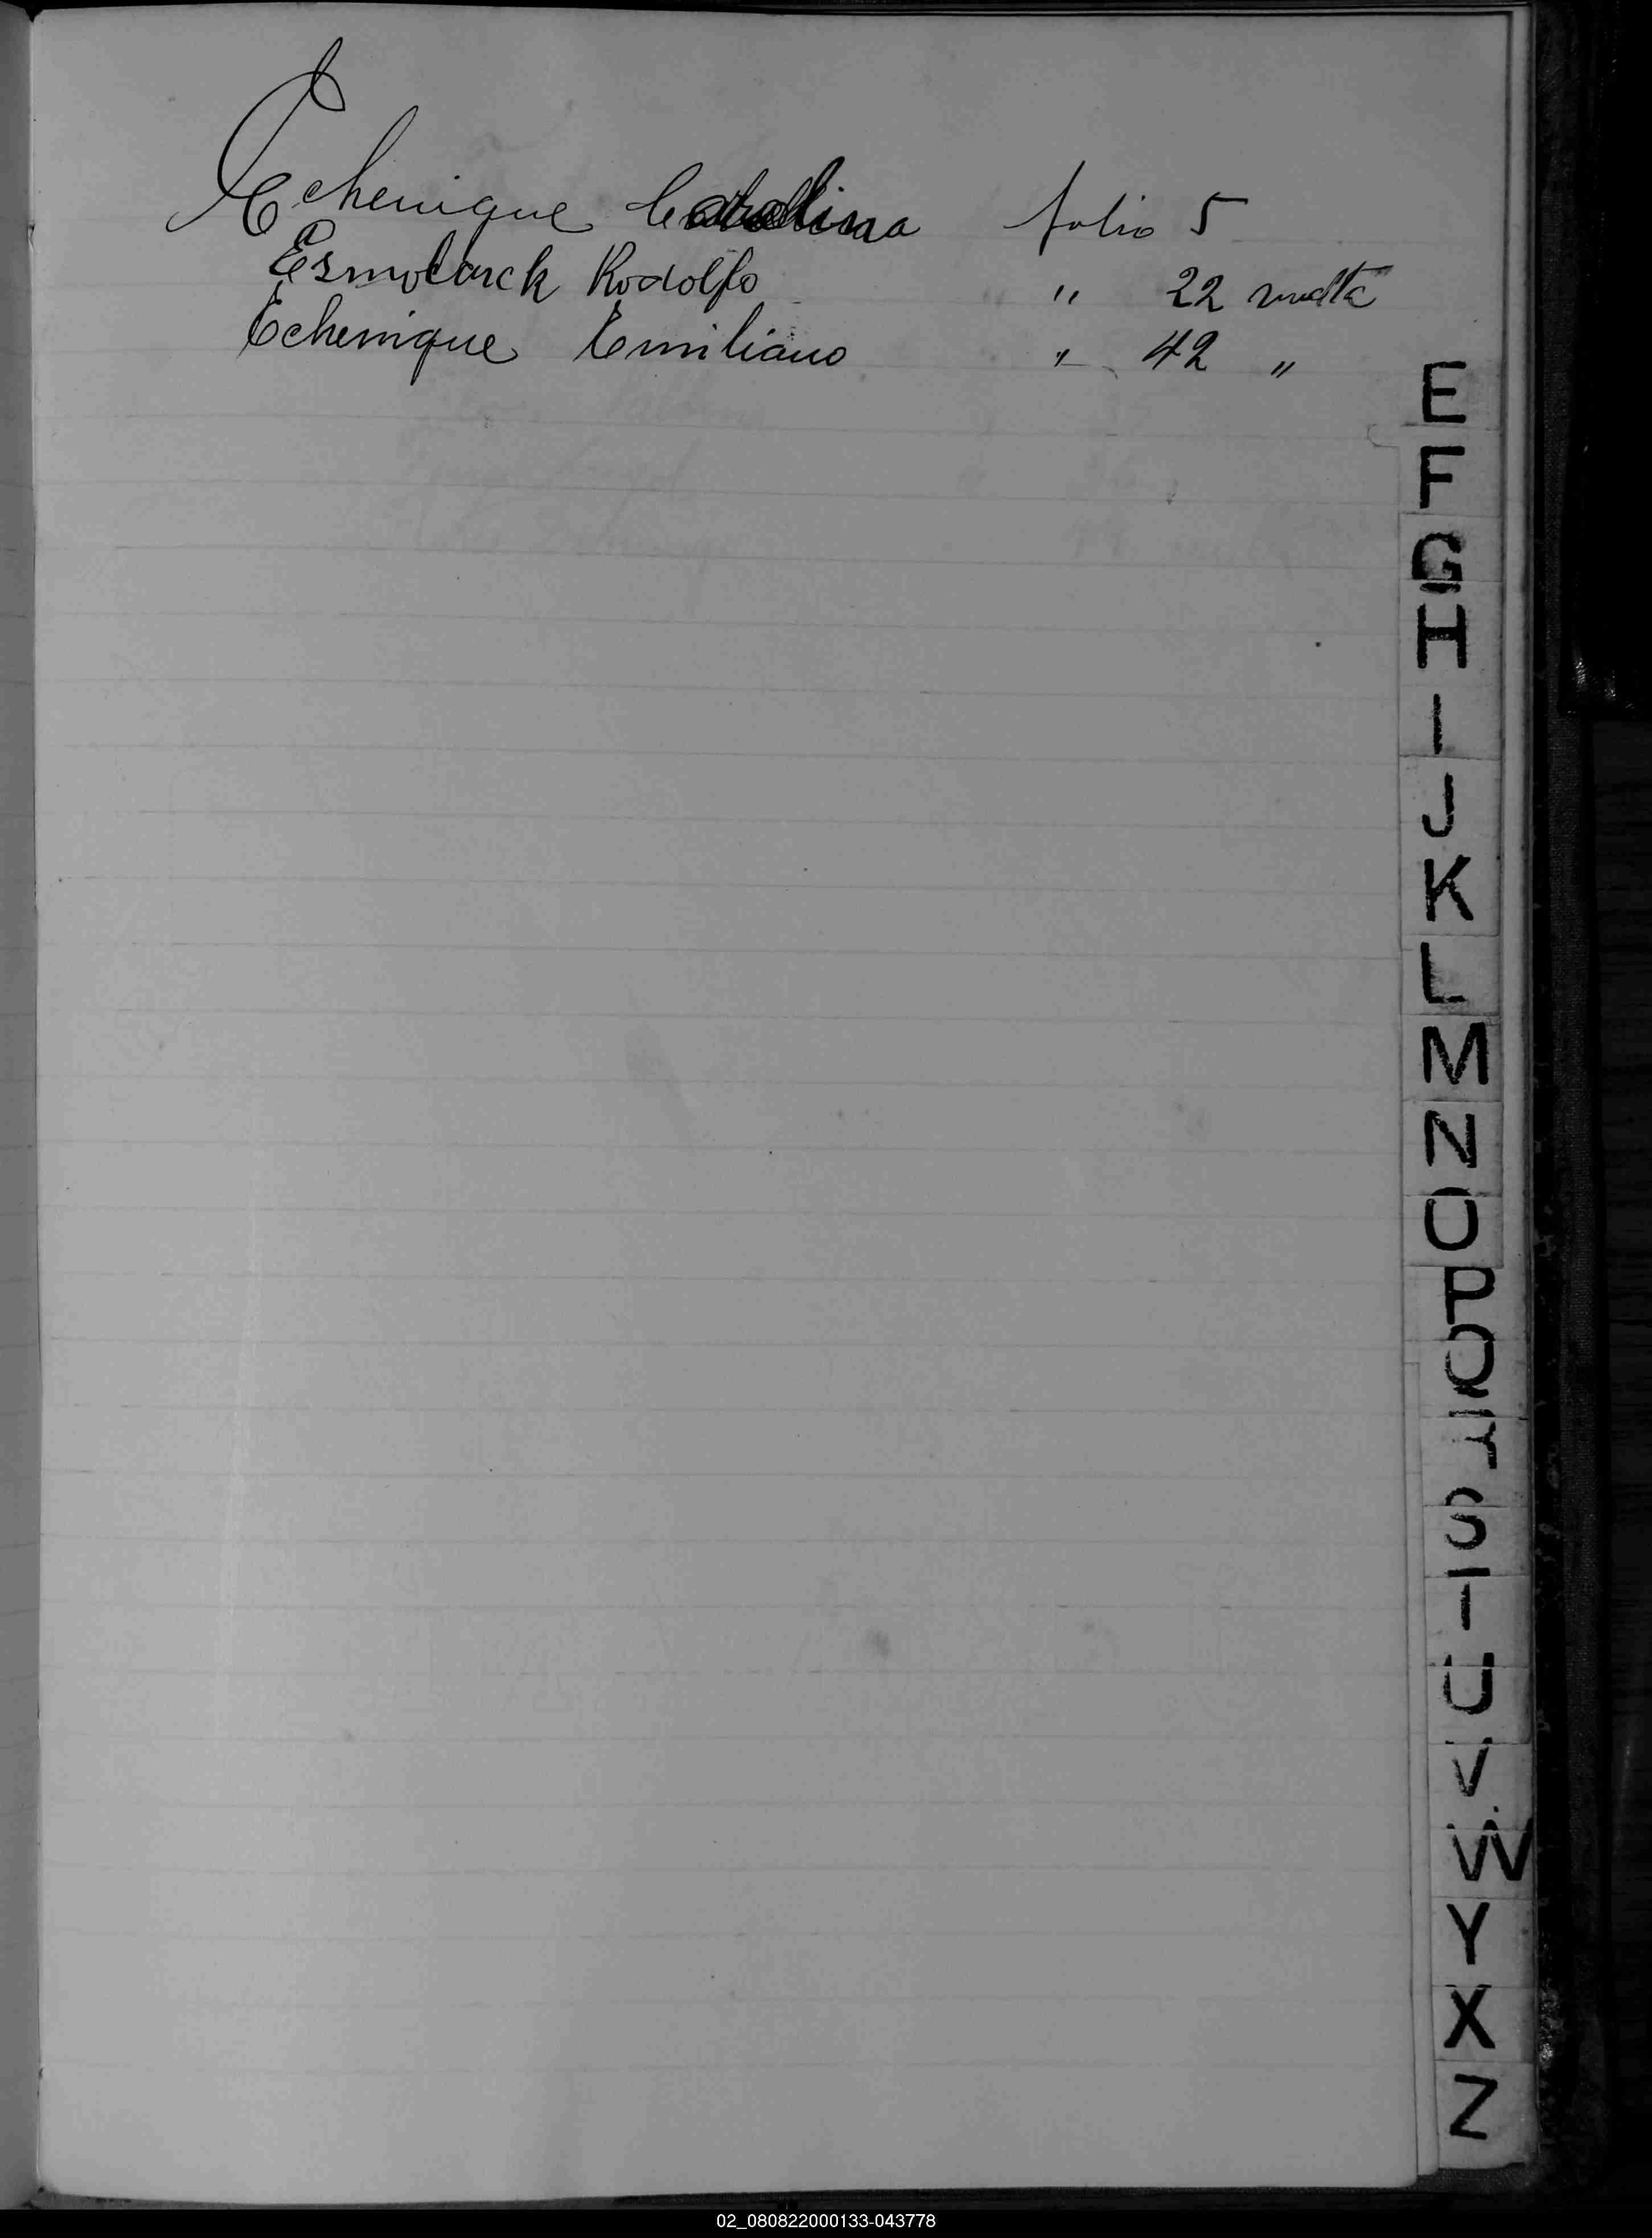 Echenique Carolina folio 5
Esmolarck Rodolfo " 22 vuelta
Echenique Emiliano " 42 "
E
F
G
H
I
J
K
L
M
N
O
P
Q
R
S
T
U
V
W
Y
X
Z
02_080822000133-043778